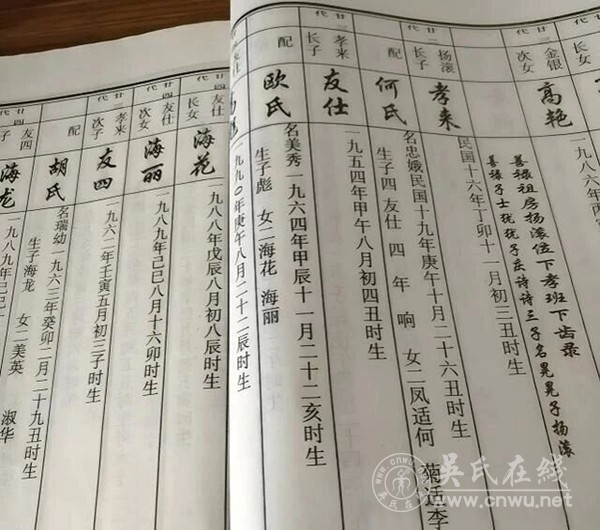 一九八六年丙
金银
次女
高艳
善禄祖房扬滚位下孝班下齿录
善禄子士犹犹子岳诗诗三子名晃晃子扬滚
廿二代
扬滚
长子
孝来
民国十六年丁卯十一月初三丑时生
配
何氏
名忠娥民国十九年庚午十月二十六丑时生
生子四 友仕 四 年 响 女二凤适何 菊适李
廿三代
孝来
长子
友仕
一九五四年甲午八月初四丑时生
配
欧氏
名美秀一九六四年甲辰十一月二十二亥时生
生子彪 女二海花 海丽
一九九〇年庚午八月二十二辰时生
友仕
长女
海花
一九八八年戊辰八月初八辰时生
友仕
次女
海丽
一九八九年己巳八月十六卯时生
孝来
次子
友四
一九六二年壬寅五月初三子时生
配
胡氏
名瑞幼一九六三年癸卯二月二十九丑时生
生子海龙 女二美英 淑华
友四
海龙
一九八九年己巳
吴氏在线
www.cnwu.net